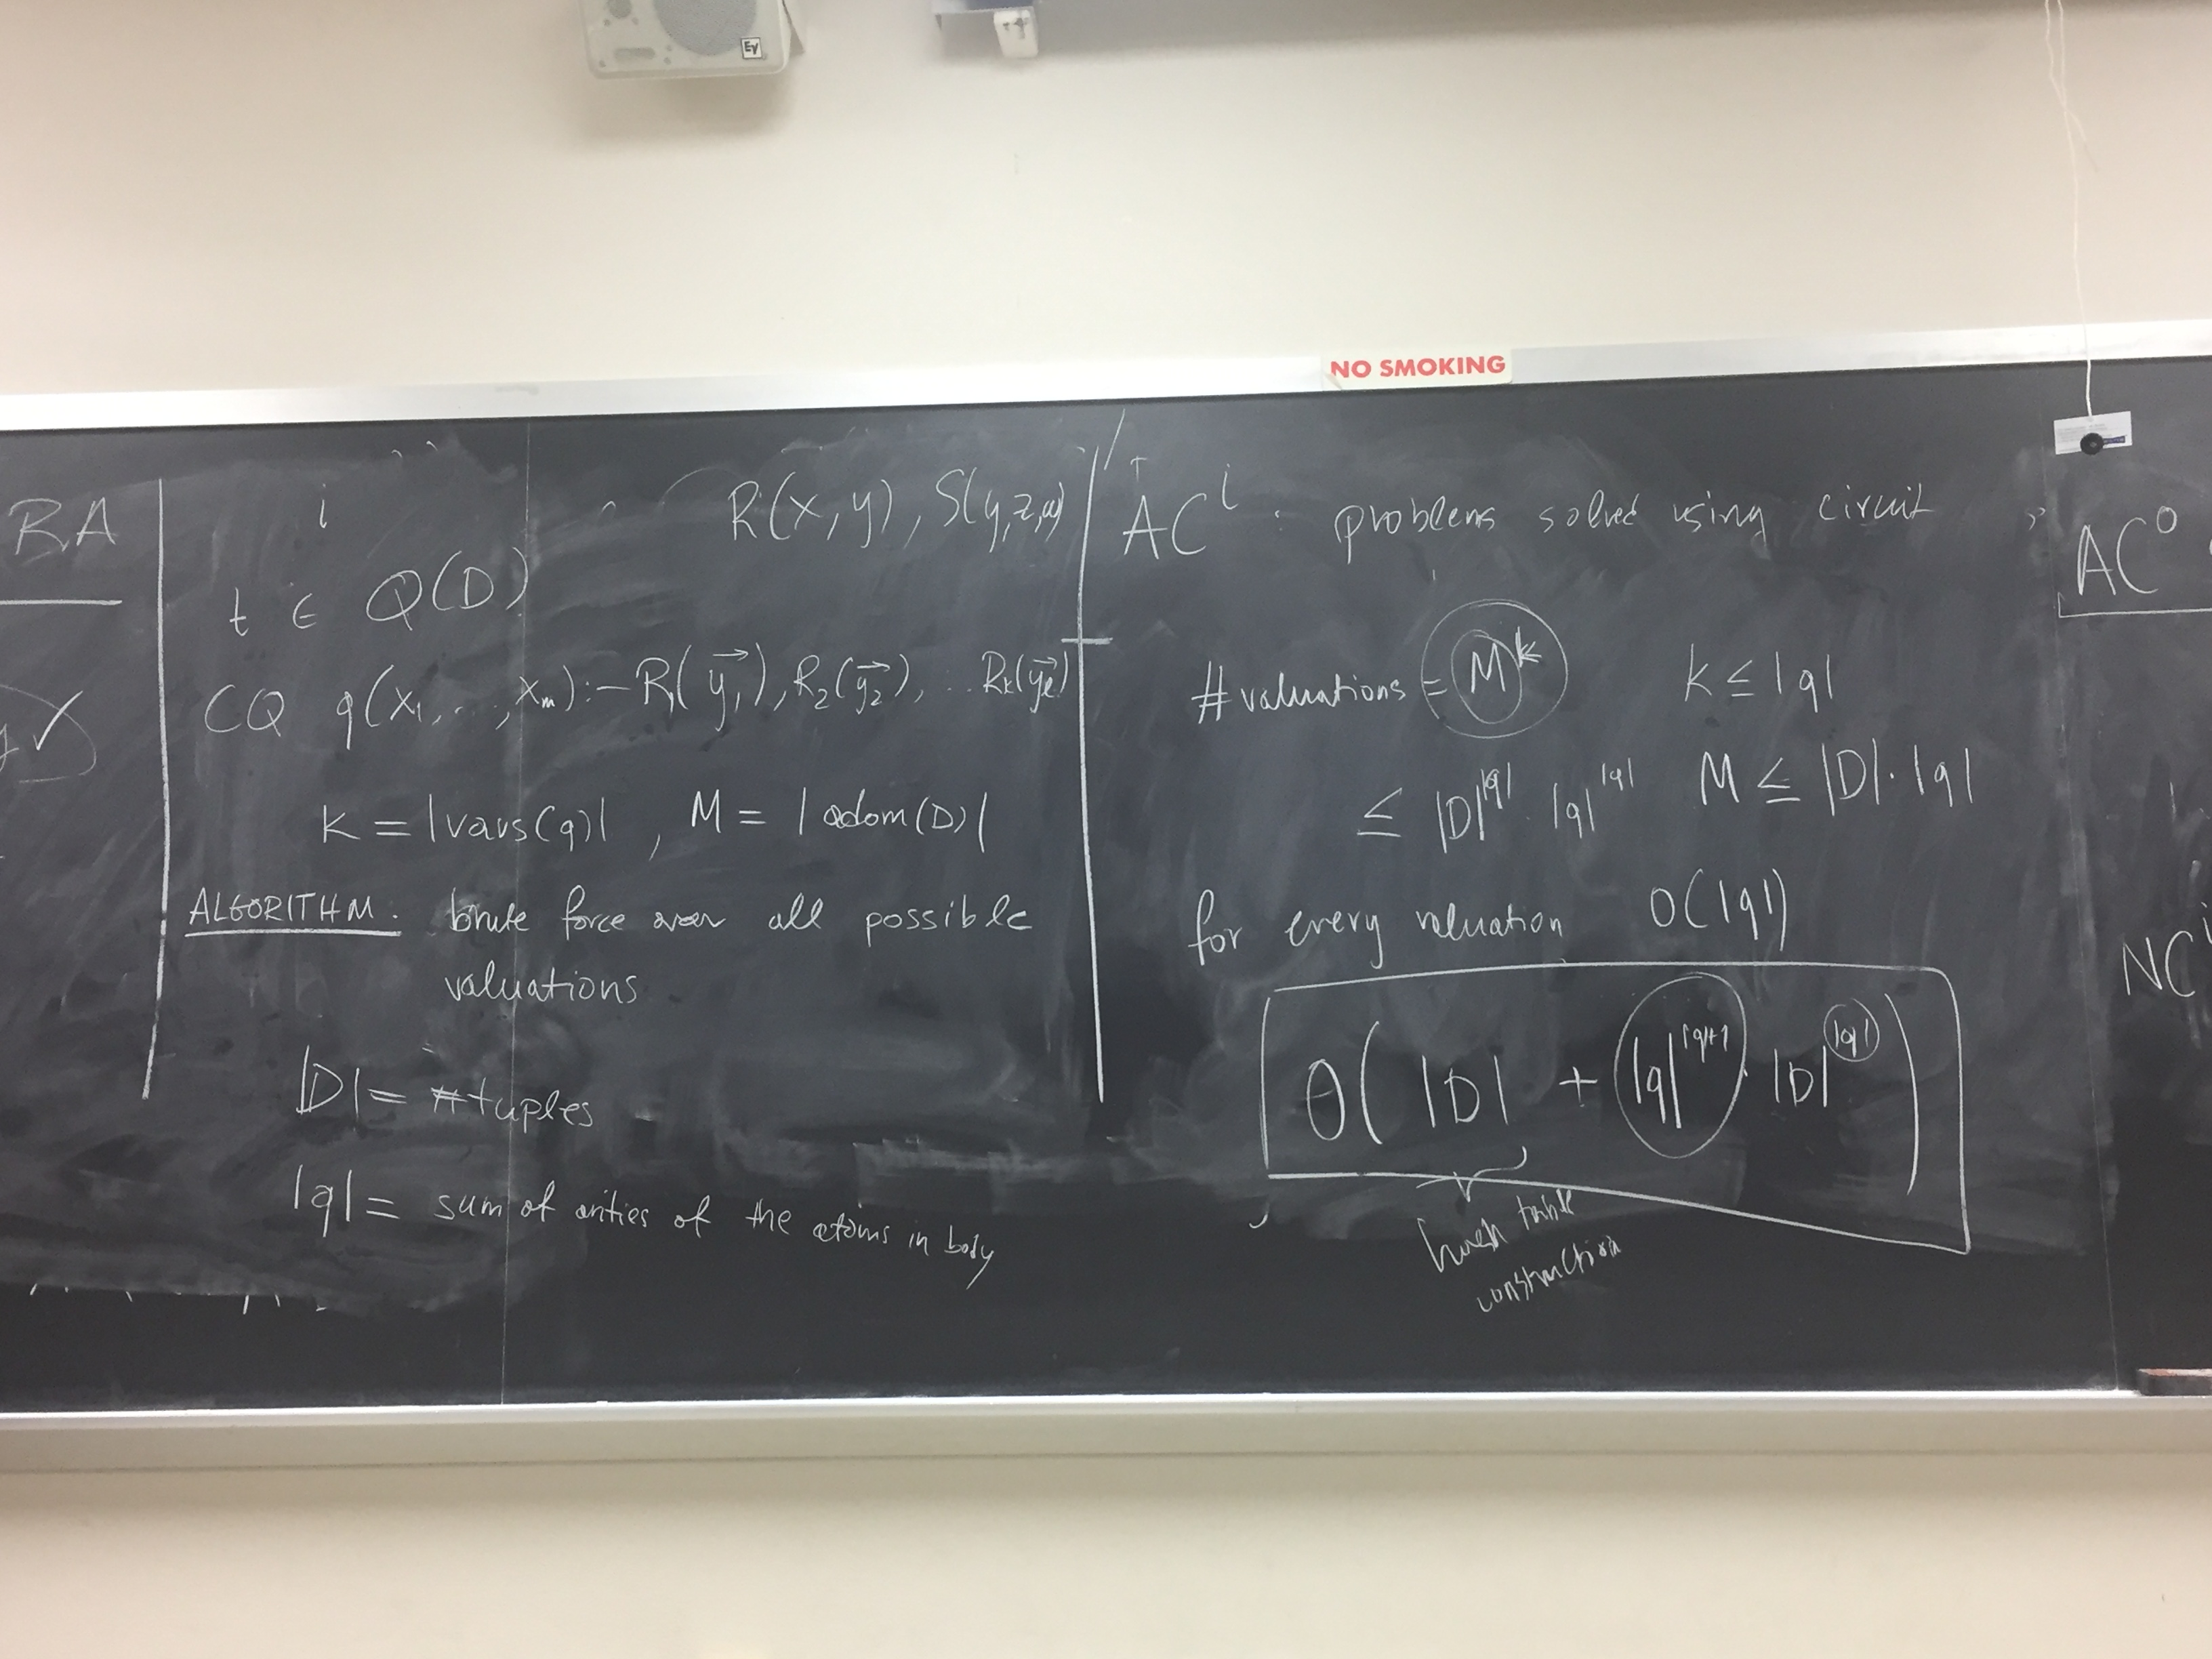 EV
NO SMOKING
RA
i
R(x,y), S(y,z,w)
t ∈ Q(D)
CQ q(x₁,...,xₘ):-R₁(y₁→),R₂(y₂→),..Rₖ(yₑ→)
K = |vars(q)| , M = |adom(D)|
ALGORITHM. brute force over all possible
valuations
|D|= #tuples
|q|= sum of arities of the atoms in body
ACⁱ : problems solved using circuit
#valuations = Mᵏ K ≤ |q|
≤ |D|^|q| · |q|^|q| M ≤ |D|·|q|
for every valuation O(|q|)
O( |D| + |q|^|q|+1 · |D|^|q| )
hash table
construction
AC⁰
NC